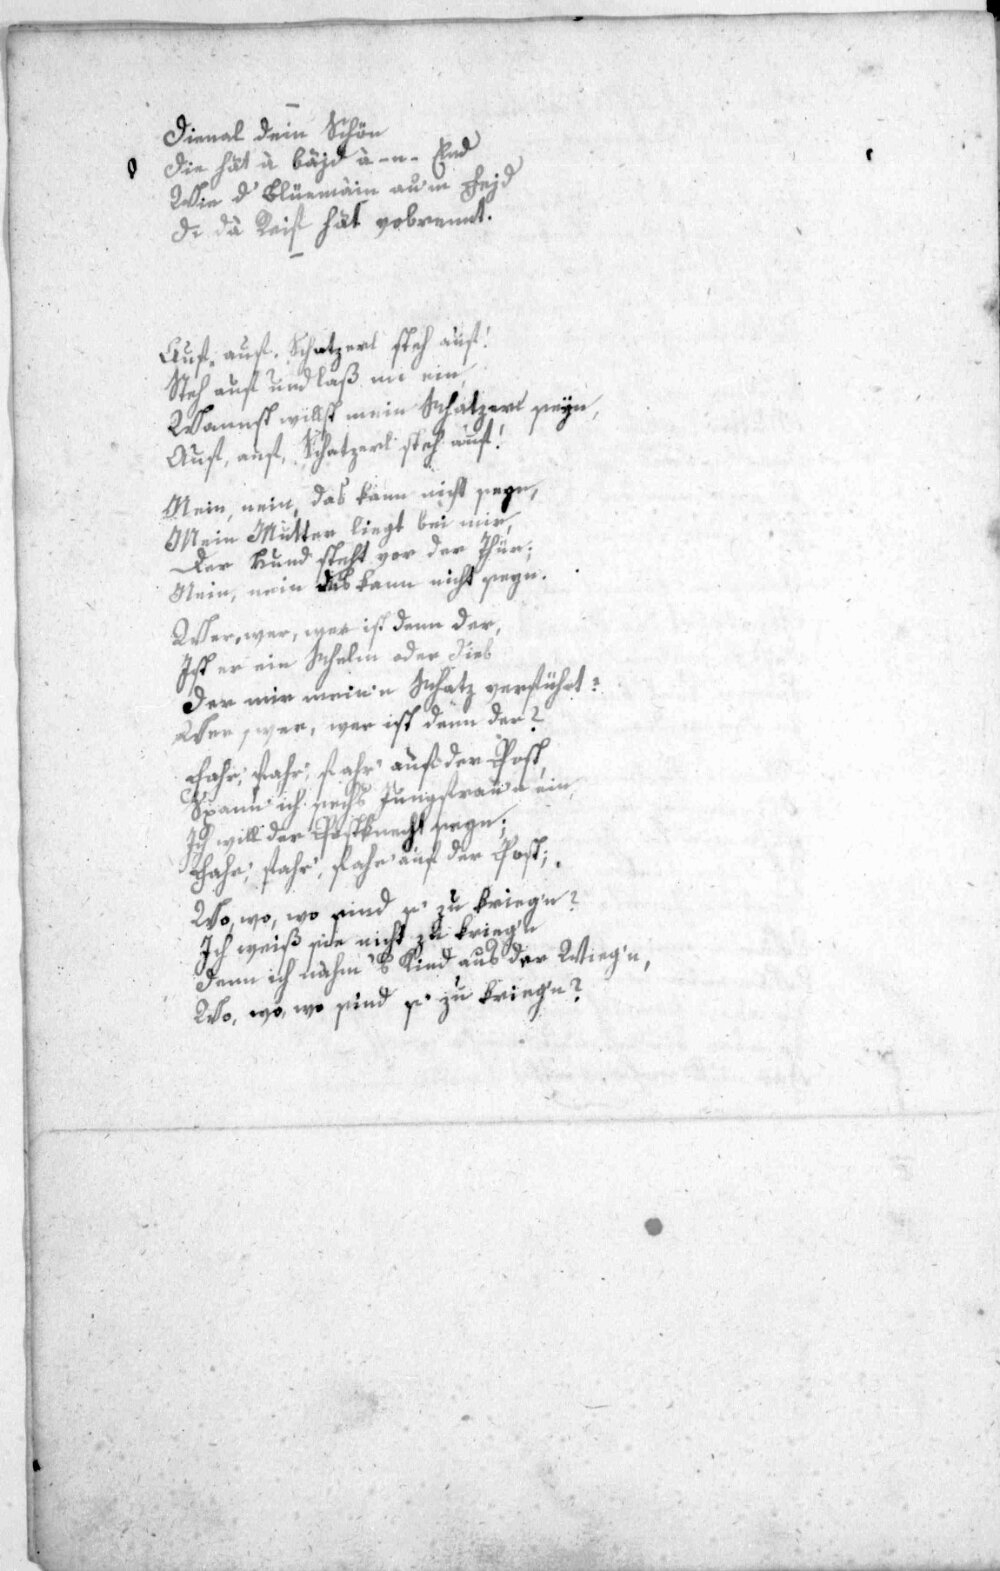 Dienal dein Schön
Die hät à bäjd à-n-End
Wie d' Blüemäin au'm Fejd
D' dà Reif hät vobrennt.
Auf, auf, Schatzerl steh auf!
Steh auf und laß mi ein,
Wannst willst mein Schatzerl seyn,
Auf, auf, Schatzerl steh auf!
Nein, nein, das kann nicht seyn,
Mein Mutter liegt bei mir,
Der Hund steht vor der Thür;
Nein, nein das kann nicht seyn.
Wer, wer, wer ist denn der,
Ist er ein Schelm oder Dieb
Der mir mein'n Schatz verführt?
Wer, wer, wer ist denn der?
Fahr', fahr', fahr' auf der Post,
Spann' ich sechs Jungfrau'n ein,
Ich will der Postknecht seyn;
Fahr', fahr', fahr' auf der Post;
Wo, wo, wo sind s' zu krieg'n?
Ich weiß sie nicht zu krieg'n
Denn ich nähm 's Kind aus der Wieg'n,
Wo, wo, wo sind s' zu krieg'n?